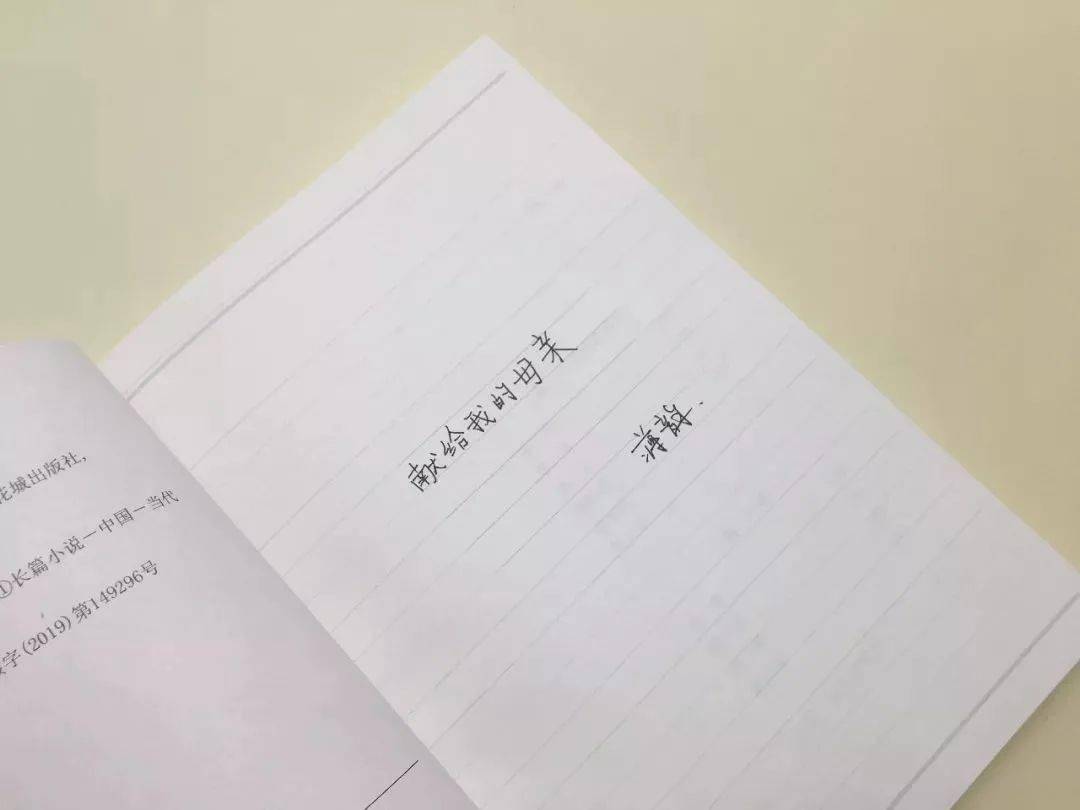 花城出版社,
①长篇小说－中国－当代
字(2019)第149296号
献给我的母亲
薄韵.